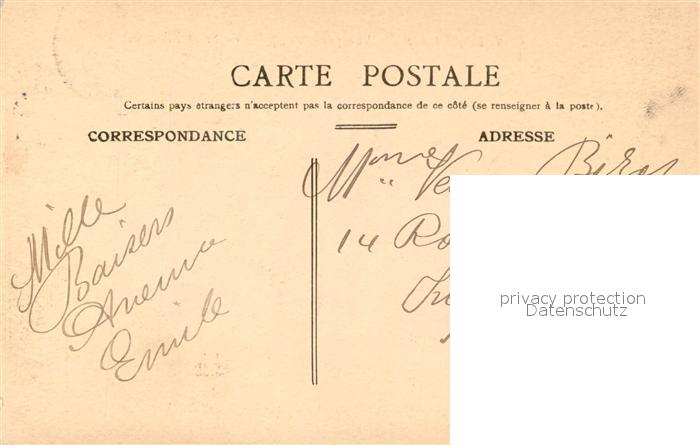 CARTE POSTALE
Certains pays étrangers n'acceptent pas la correspondance de ce côté (se renseigner à la poste).
CORRESPONDANCE
Mille
Baisers
Emile
ADRESSE
14
privacy protection
Datenschutz